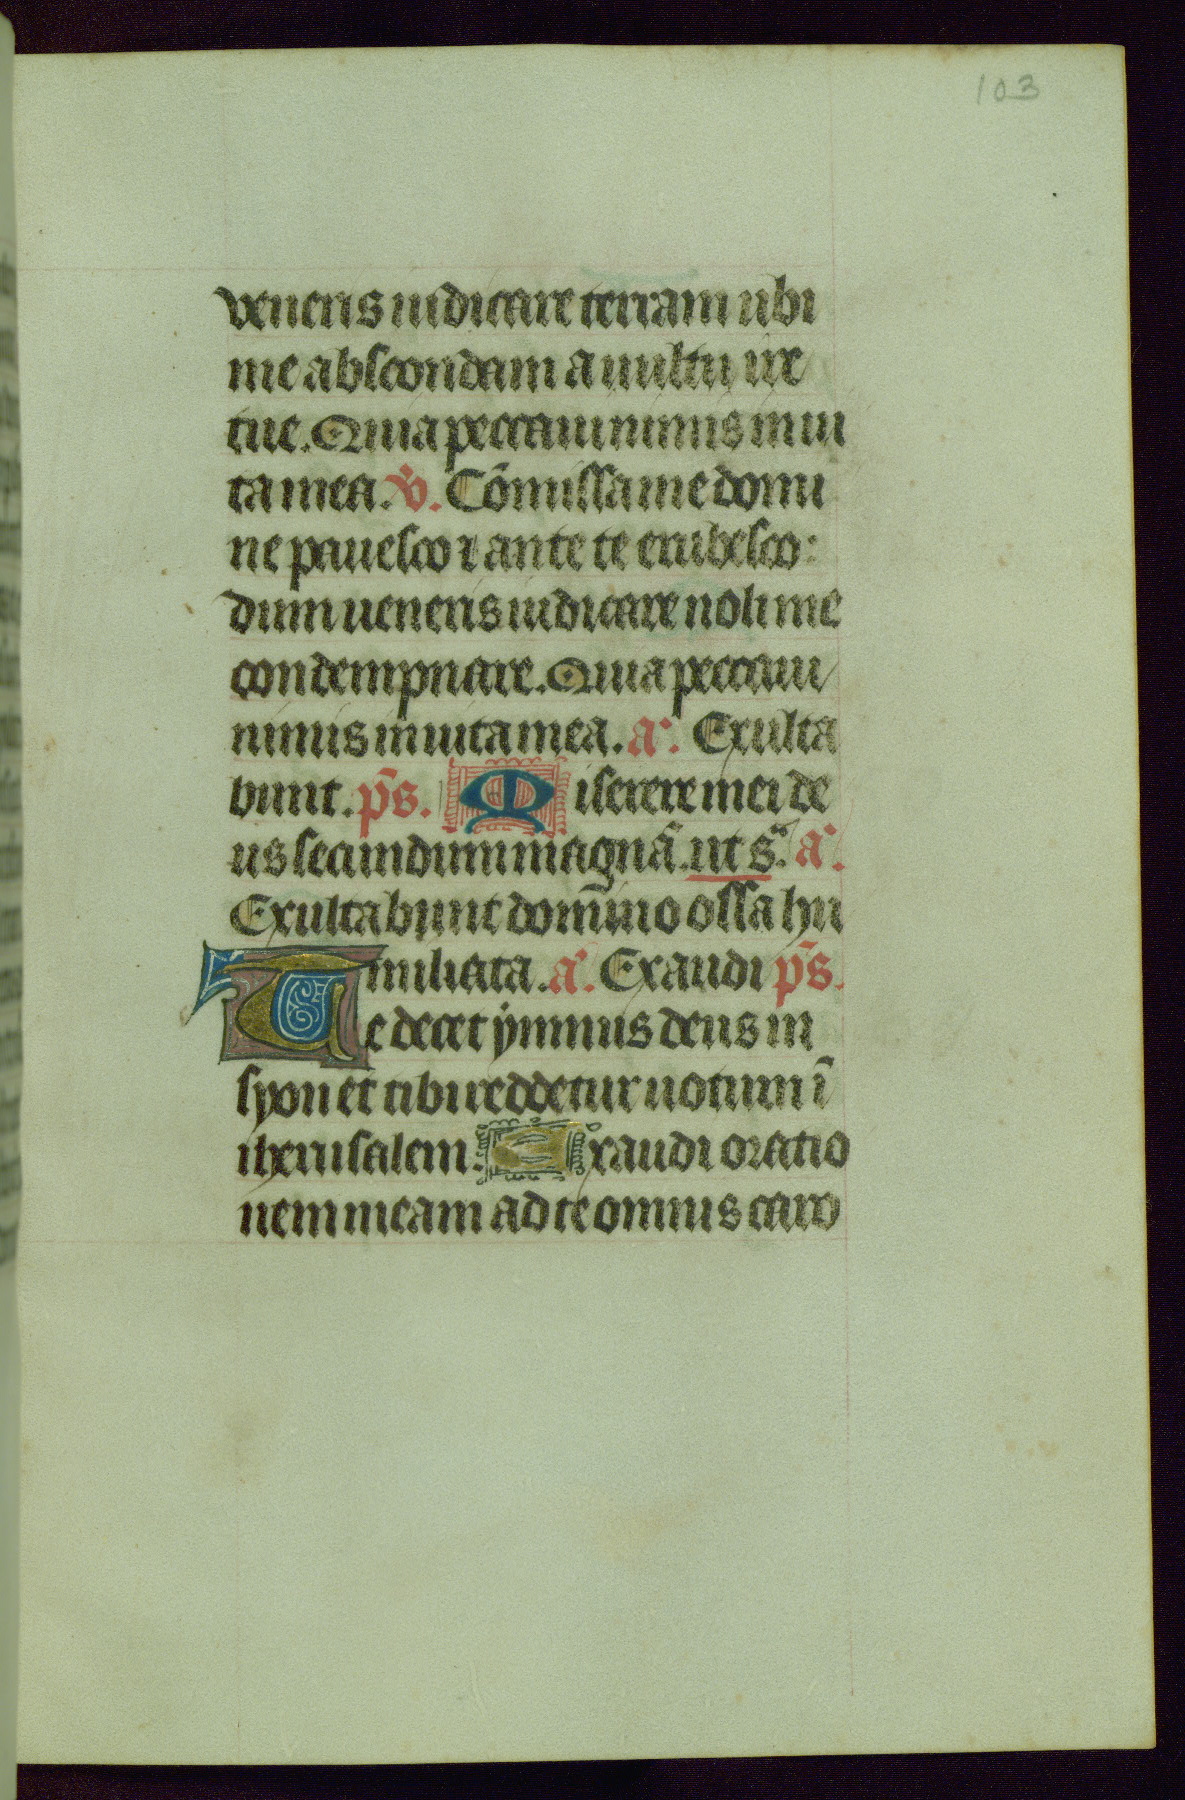 103
veneris iudicare terram ubi
me abscondam a uultu ire
tue. Quia peccaui nimis in ui
ta mea. v. Cōmissa me domi
ne pauesco ⁊ ante te erubesco:
dum ueneris iudicare noli me
condempnare. Quia peccaui
nimis in uita mea. aͣ. Exulta
bunt. p̄s. Miserere mei de
us secundum magnā. ut sͣ. aͣ.
Exultabunt domīno ossa hu
miliata. aͣ. Exaudi p̄s.
Te decet ymnus deus in
syon et tibi reddetur uotum ī
iherusalem. Exaudi oratio
nem meam ad te omnis caro